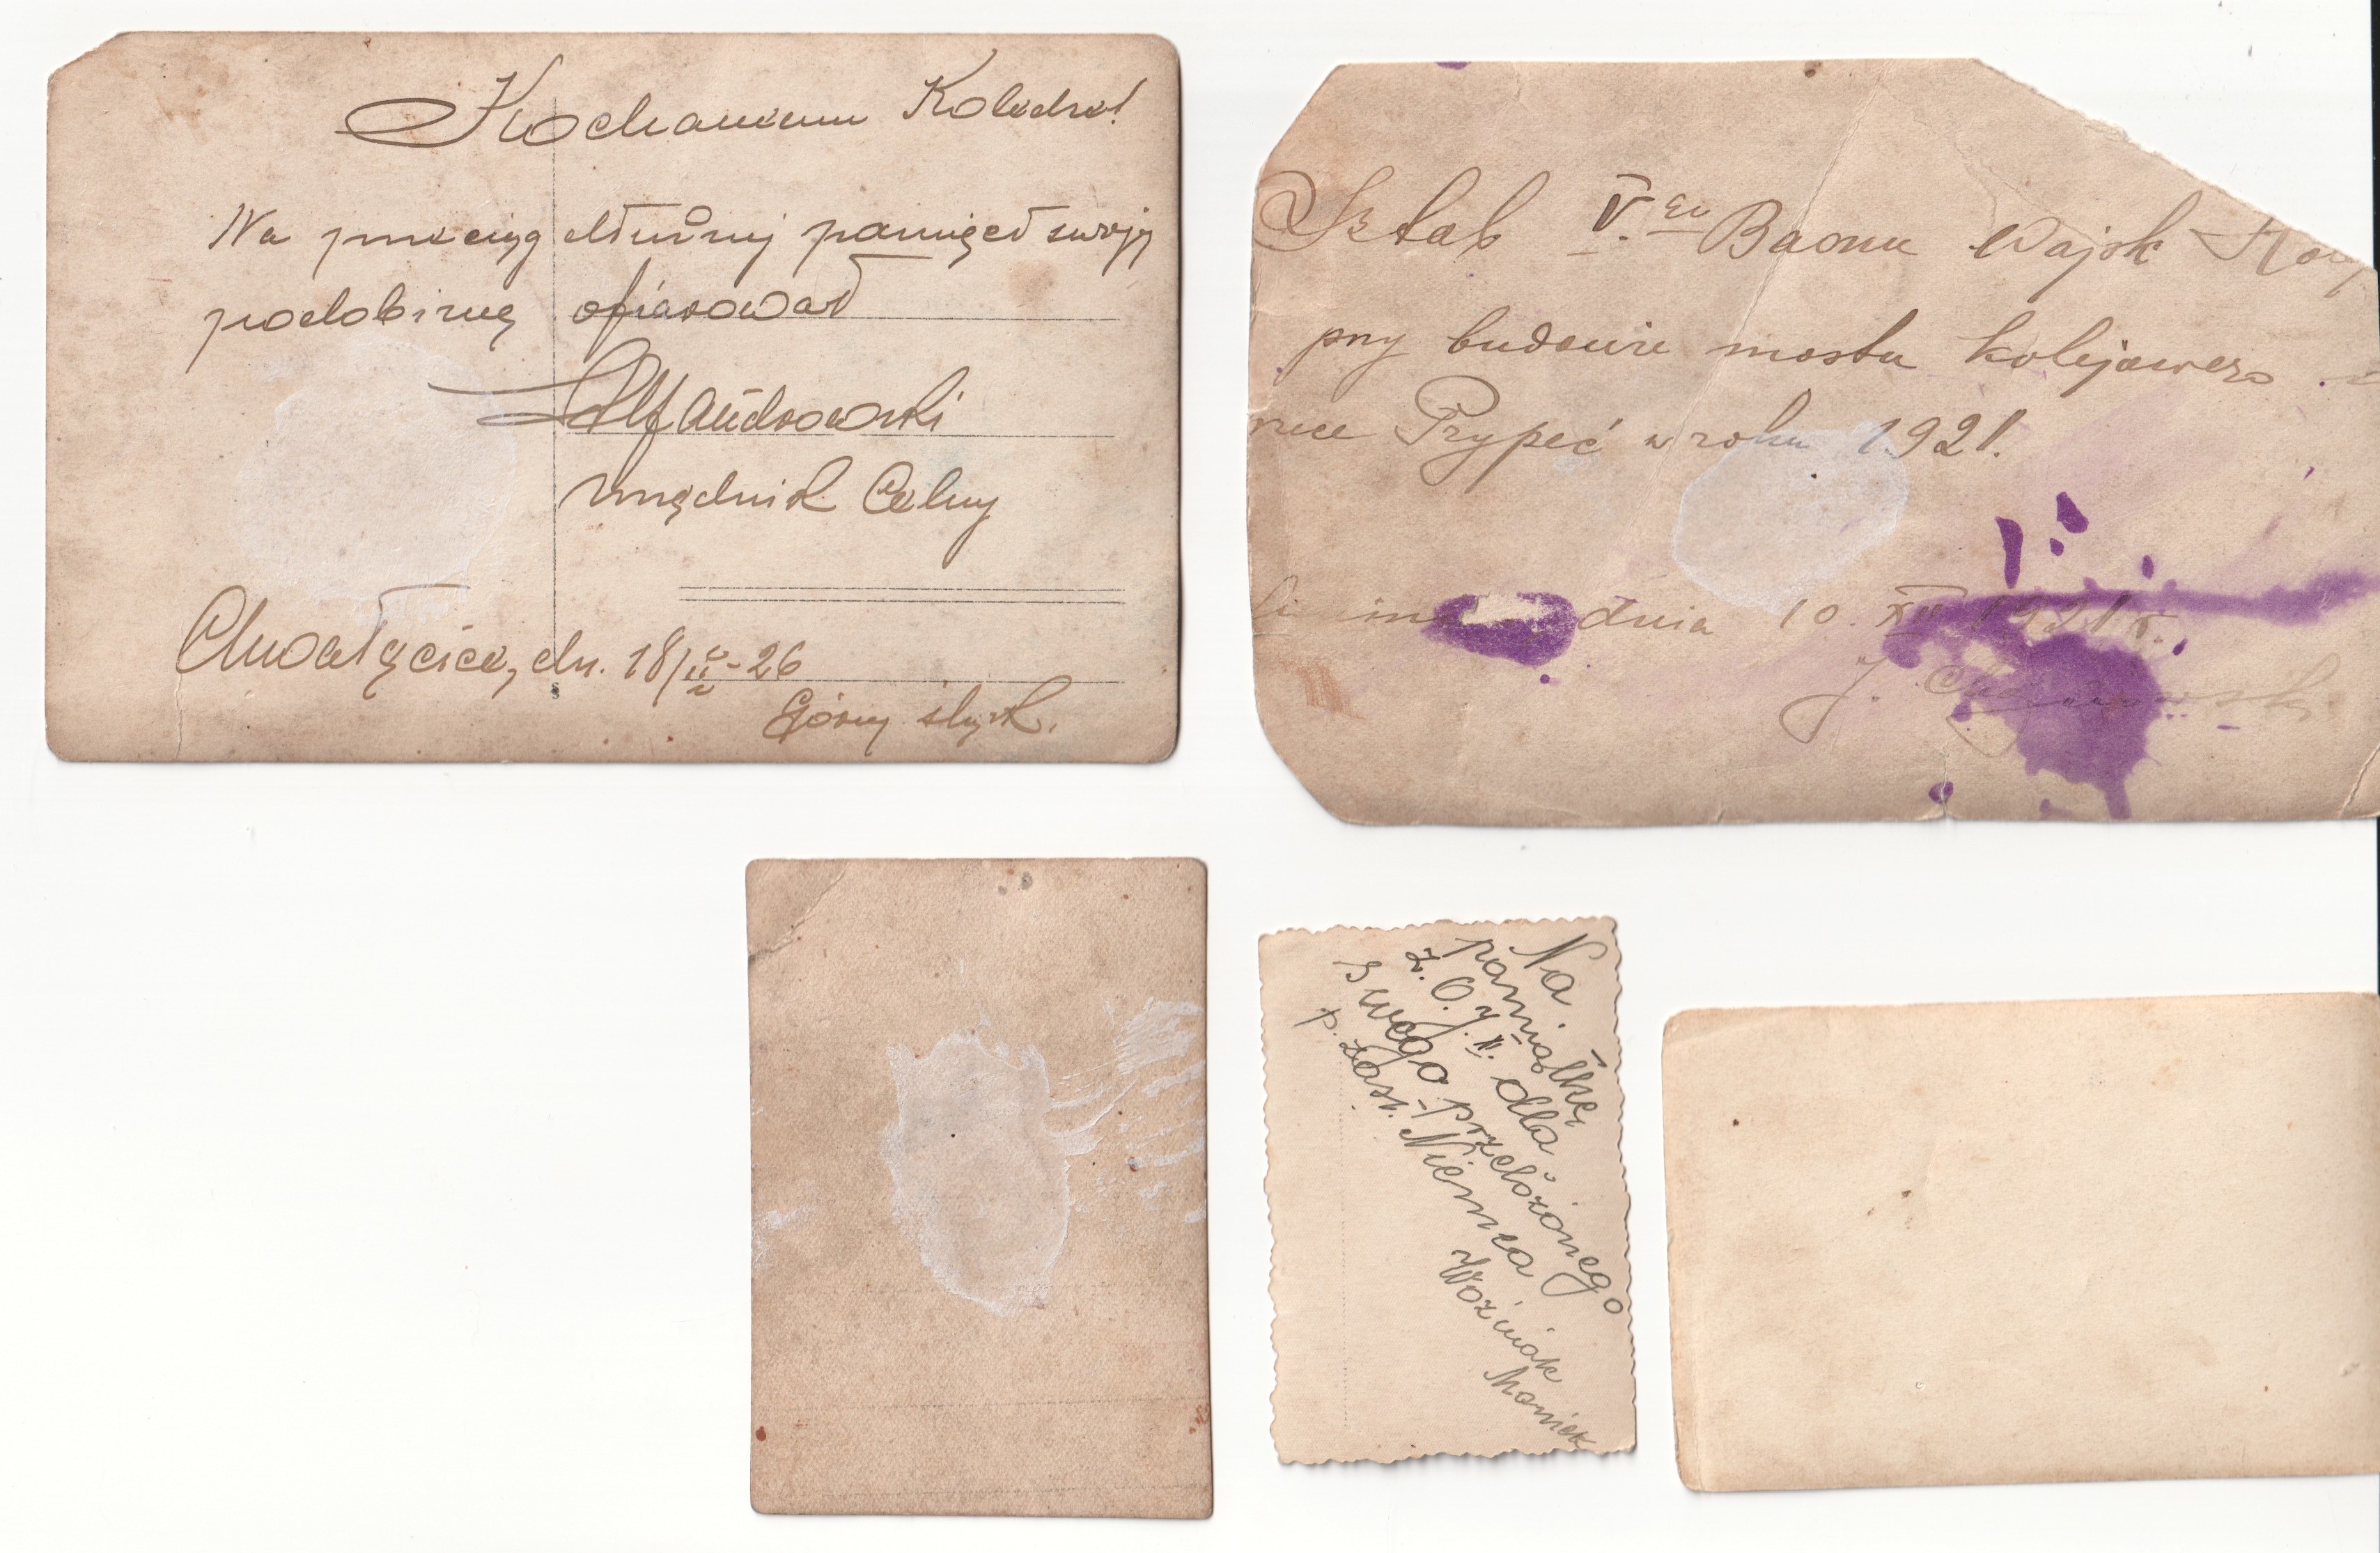 Kochanemu Koledze!
Na przeciąg dłuższej pamięci swoją
podobiznę ofiarował
urzędnik Celny
Chwałęcice, dn. 18/IV-26
Górny Śląsk.
Sztab V.go Baonu Wojsk Kol
przy budowie mostu kolejowego
rzece Prypeć w roku 1921.
dnia 10. XII 1921 r.
J.
Na
pamiątkę
dla
swego przełożonego
p. zast. Niemca
Woźniak
Maniek